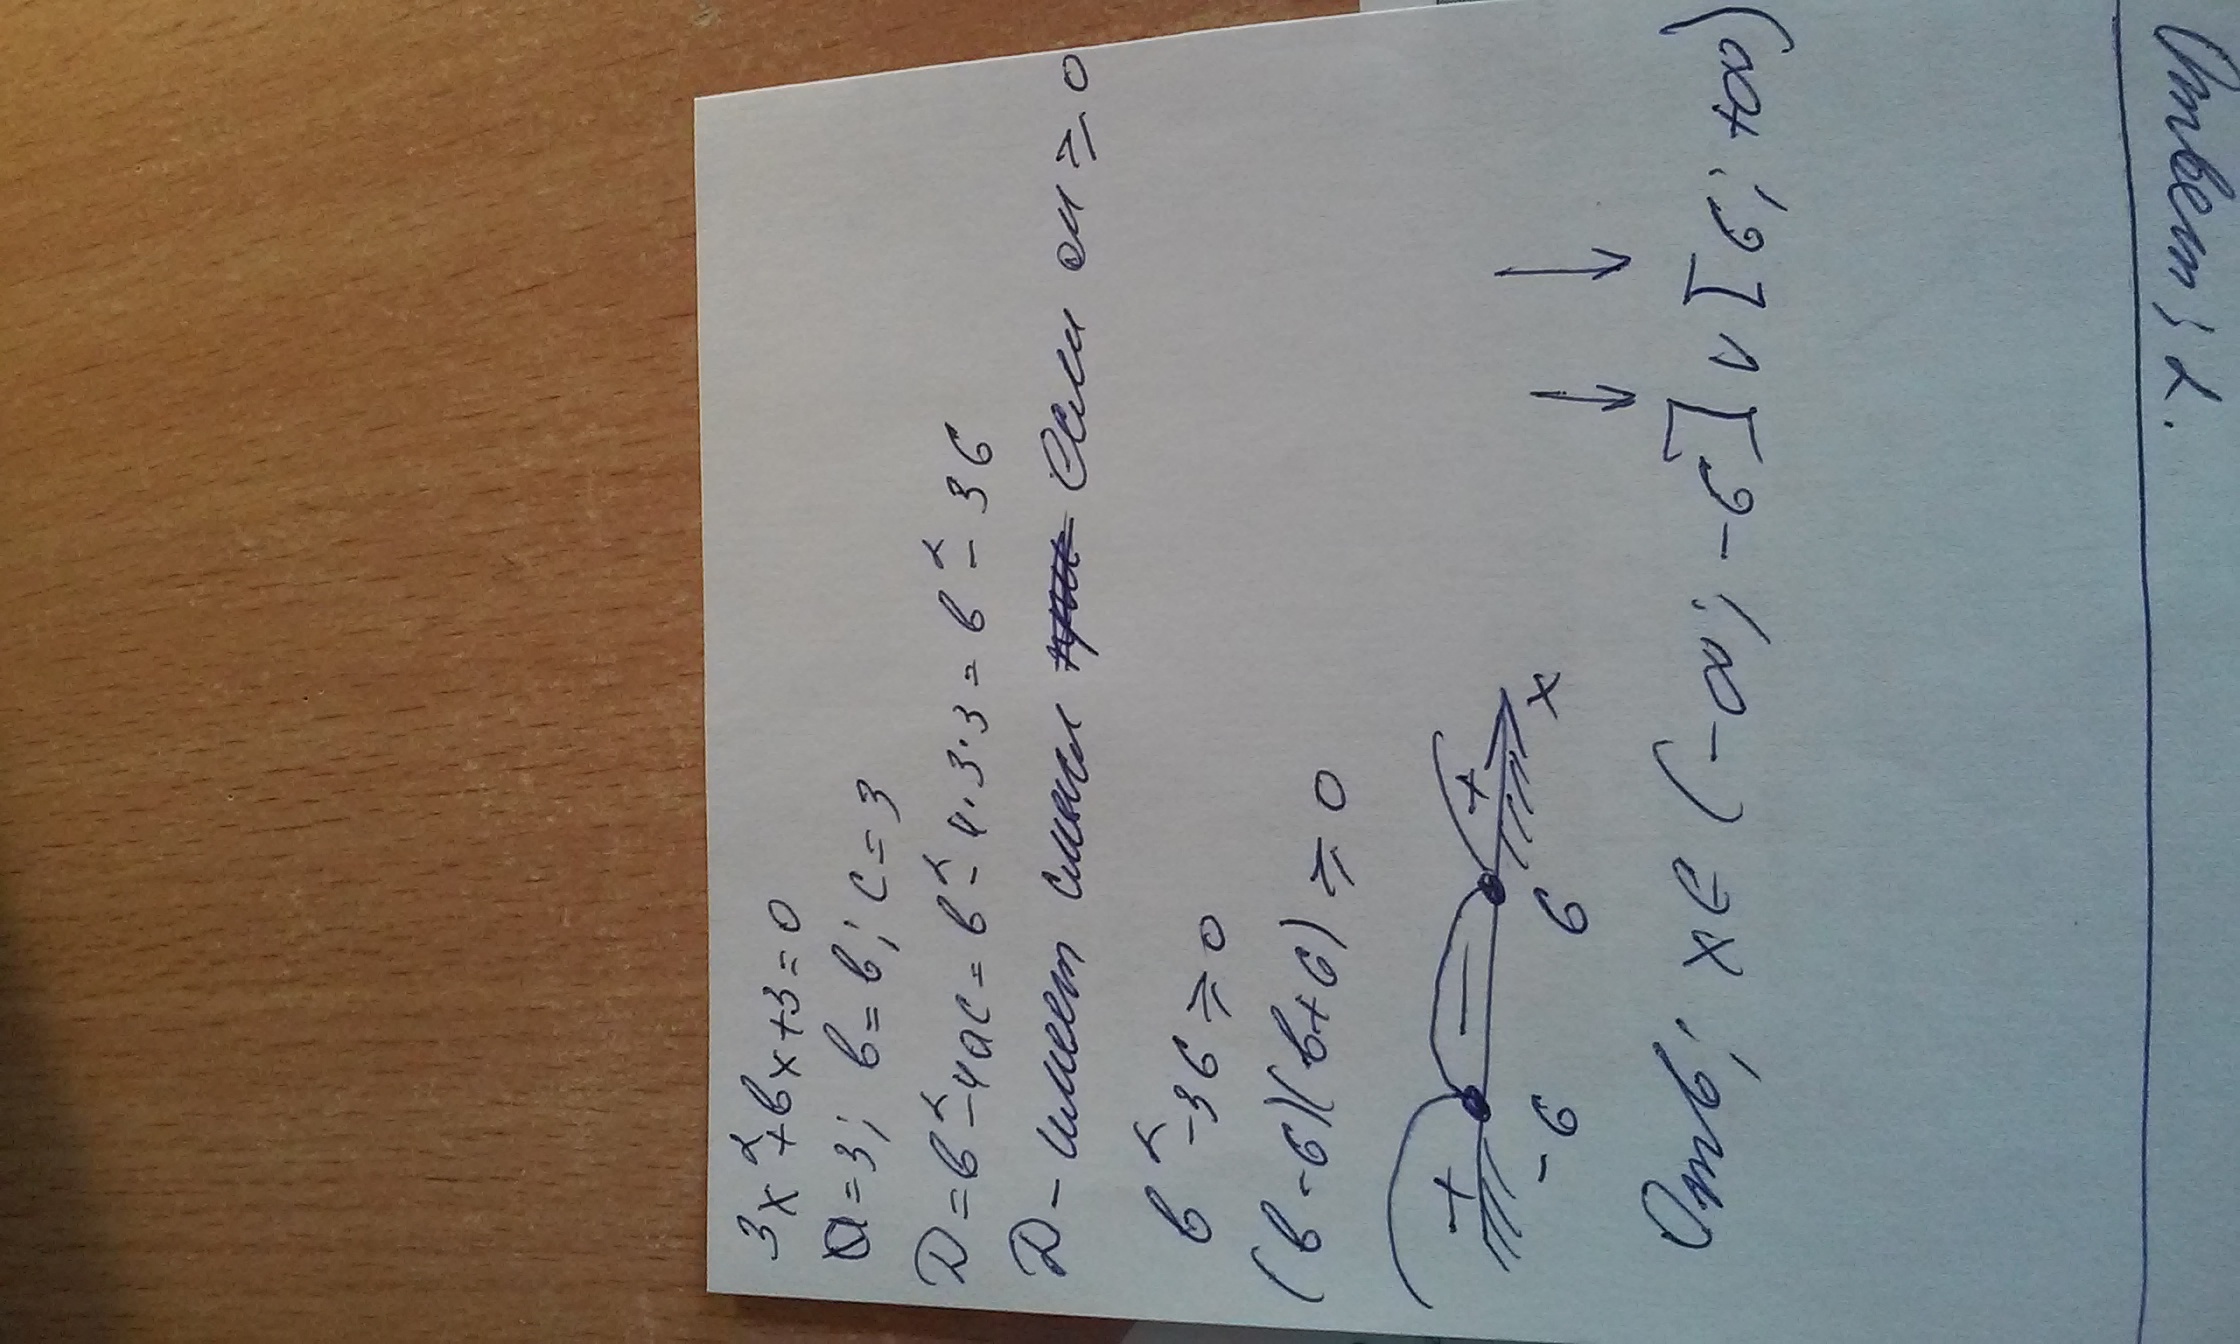 3x²+bx+3=0
a=3; b=b; c=3
D=b²-4ac=b²-4·3·3=b²-36
D-имеет смысл при если он ⩾0
b²-36⩾0
(b-6)(b+6)⩾0
+ - +
-6 6 x
Отв; x∈(-∞; -6]∨[6; +∞)
Ответ; 2.